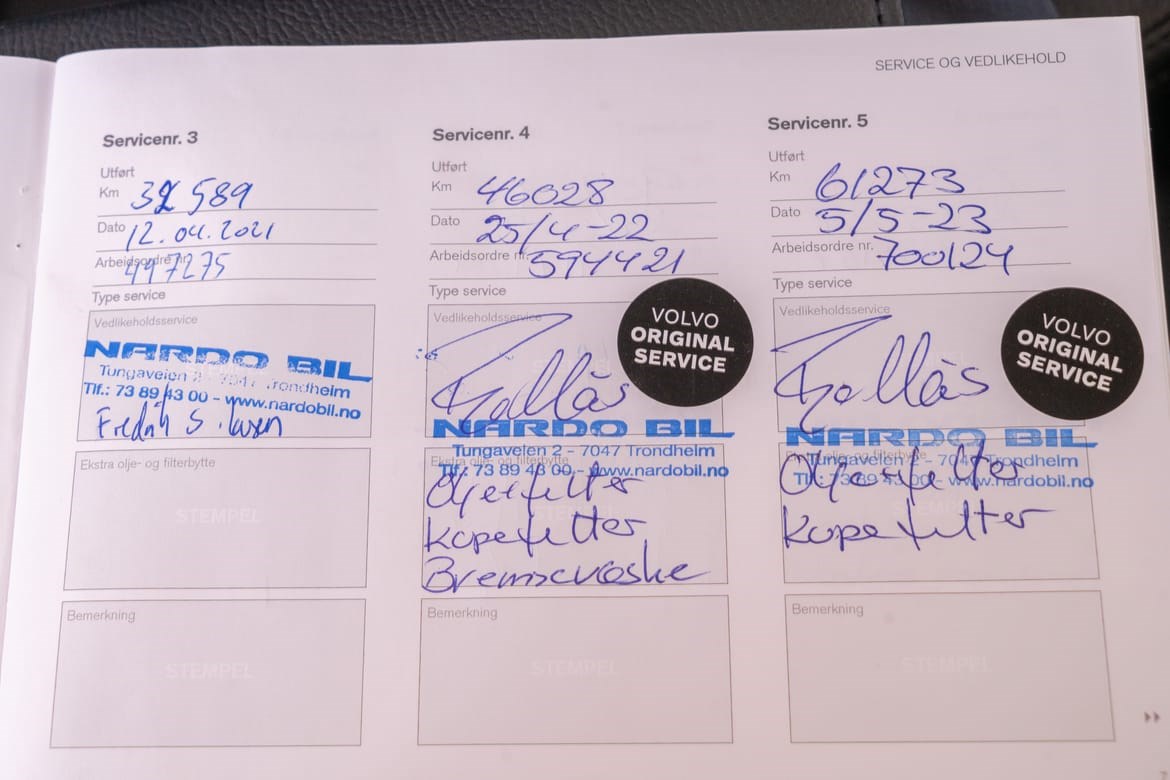 SERVICE OG VEDLIKEHOLD
Servicenr. 3
Utført
Km 32 589
Dato 12.04.2021
Arbeidsordre nr. 497275
Type service
Vedlikeholdsservice
NARDO BIL
Tungaveien 2 - 7047 Trondheim
Tlf.: 73 89 43 00 - www.nardobil.no
Ekstra olje- og filterbytte
STEMPEL
Bemerkning
STEMPEL
Servicenr. 4
Utført
Km 46028
Dato 25/4-22
Arbeidsordre nr. 594421
Type service
Vedlikeholdsservice
VOLVO
ORIGINAL
SERVICE
NARDO BIL
Tungaveien 2 - 7047 Trondheim
Ekstra olje- og filterbytte
Tlf.: 73 89 43 00 - www.nardobil.no
Oljefilter
Kupefilter
Bremsevæske
Bemerkning
STEMPEL
Servicenr. 5
Utført
Km 61273
Dato 5/5-23
Arbeidsordre nr. 700124
Type service
Vedlikeholdsservice
VOLVO
ORIGINAL
SERVICE
NARDO BIL
Tungaveien 2 - 7047 Trondheim
Tlf.: 73 89 43 00 - www.nardobil.no
Oljefilter
Kupefilter
Bemerkning
STEMPEL